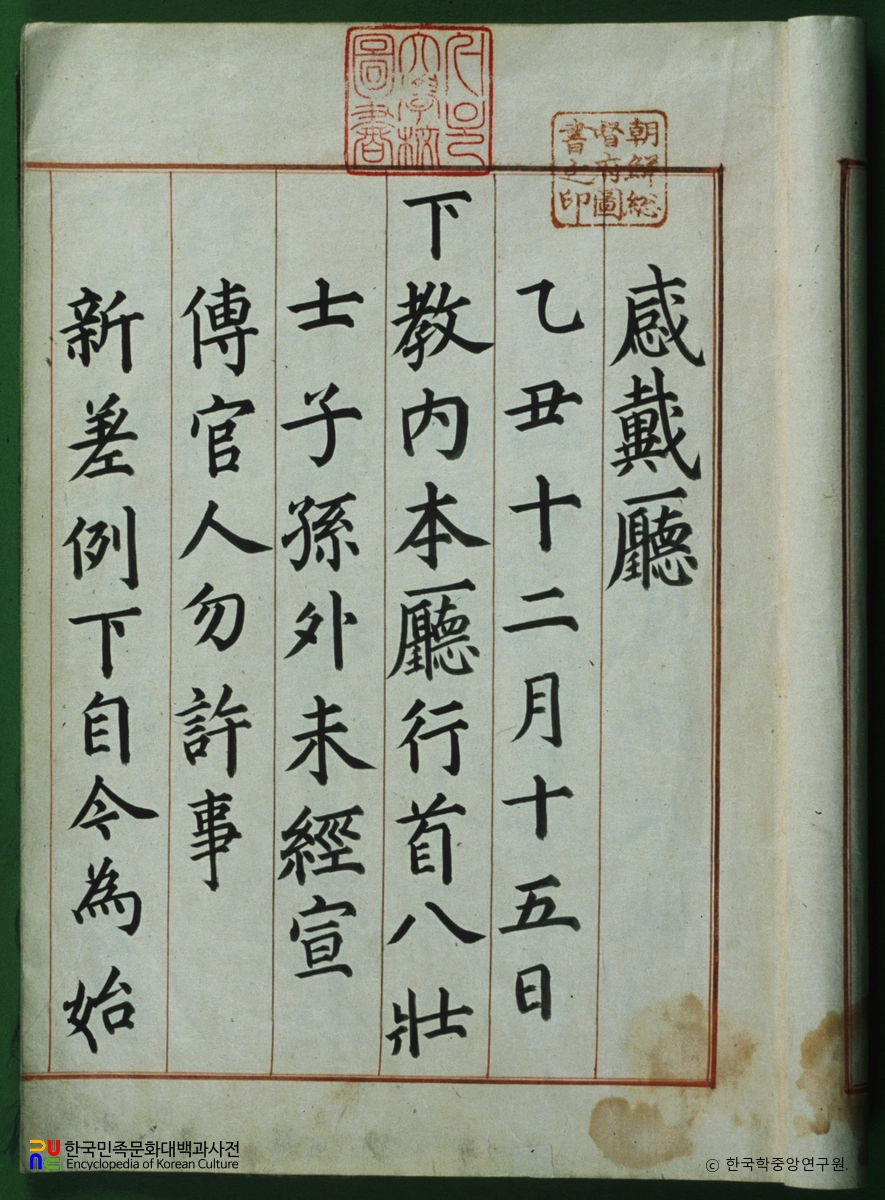 感戴廳
乙丑十二月十五日
下教內本廳行首八壯
士子孫外未經宣
傳官人勿許事
新差例下自今為始
朝鮮總
督府圖
書之印
서울
大學校
圖書
한국민족문화대백과사전
Encyclopedia of Korean Culture
© 한국학중앙연구원.